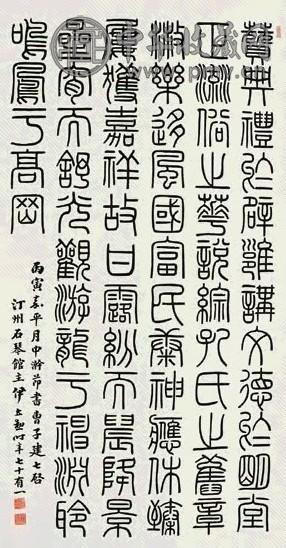 贊典禮於辟雍講文德於明堂
正流俗之華說綜孔氏之舊章
散樂移風國富民康神應休臻
屢獲嘉祥故甘露紛而晨降景
星宵而舒光觀游龍于神淵聆
鳴鳳于高岡
丙寅嘉平月中澣節書曹子建七啓
汀州石琴館主伊立勳時年七十有一